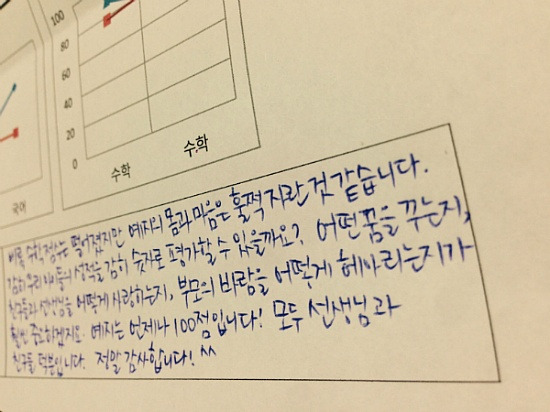 100
80
60
40
20
0
국어
수학
수학
비록 수학점수는 떨어졌지만 예지의 몸과 마음은 훌쩍 자란 것 같습니다.
감히 우리 아이들의 성적을 감히 숫자로 평가할 수 있을까요? 어떤 꿈을 꾸는지,
친구들과 선생님을 어떻게 사랑하는지, 부모의 바람을 어떻게 헤아리는지가
훨씬 중요하겠지요. 예지는 언제나 100점입니다! 모두 선생님과
친구들 덕분입니다. 정말 감사합니다! ^^